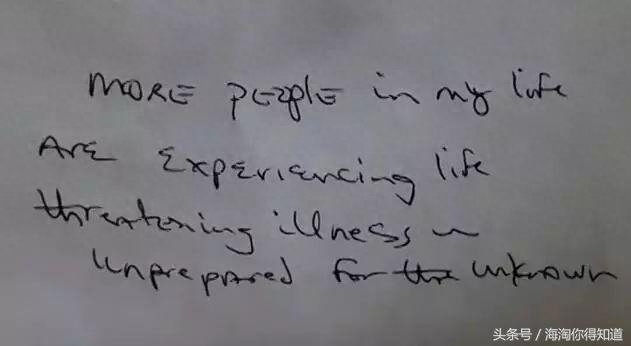 MORE PEOPLE in my life
ARE EXPERIENCING life
threatening illness ~
Unprepared for the unknown
头条号 / 海淘你得知道